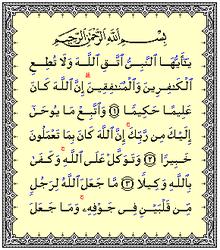 بِسْمِ ٱللَّهِ ٱلرَّحْمَٰنِ ٱلرَّحِيمِ
يَٰٓأَيُّهَا ٱلنَّبِىُّ ٱتَّقِ ٱللَّهَ وَلَا تُطِعِ
ٱلْكَٰفِرِينَ وَٱلْمُنَٰفِقِينَ ۗ إِنَّ ٱللَّهَ كَانَ
عَلِيمًا حَكِيمًا ١ وَٱتَّبِعْ مَا يُوحَىٰٓ
إِلَيْكَ مِن رَّبِّكَ ۚ إِنَّ ٱللَّهَ كَانَ بِمَا تَعْمَلُونَ
خَبِيرًا ٢ وَتَوَكَّلْ عَلَى ٱللَّهِ ۚ وَكَفَىٰ
بِٱللَّهِ وَكِيلًا ٣ مَّا جَعَلَ ٱللَّهُ لِرَجُلٍ
مِّن قَلْبَيْنِ فِى جَوْفِهِۦ ۚ وَمَا جَعَلَ